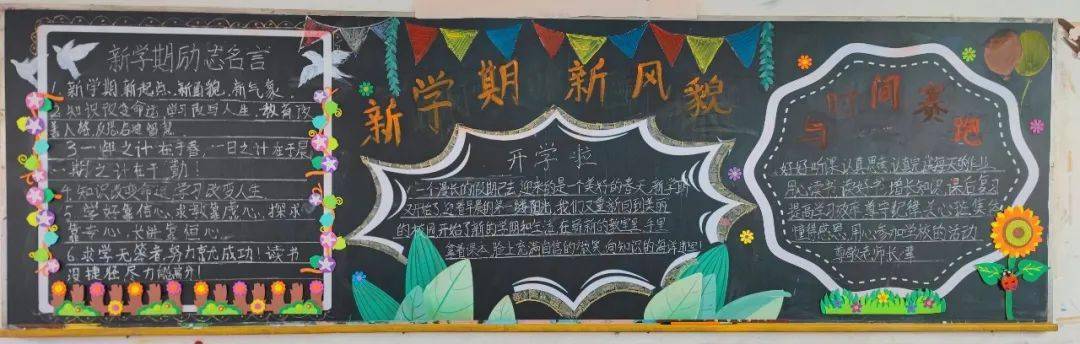 新学期励志名言
1.新学期 新起点、新面貌、新气象
2.知识改变命运,学习改写人生,教育改
善人格,反思启迪智慧
3.一年之计在于春,一日之计在于晨
一期之计在于勤!
4.知识改变命运 学习改变人生
5.学好靠信心、求教靠虚心、探求
靠专心、长进靠恒心
6.求学无笨者,努力就成功!读书
没捷径 尽力能高分!
新学期 新风貌
开学啦
一个漫长的假期已去,迎来的是一个美好的春天,新学期
又开始了,迎着早晨的第一缕阳光,我们又重新回到美丽
的校园,开始了新的学期和生活,在崭新的教室里,手里
拿着课本,脸上充满自信的微笑,向知识的海洋进军!
与时间赛跑
好好听课,认真思考,认真完成每天的作业
用心读书,读好书,增长知识,课后复习
提高学习效率,遵守纪律,关心班集体
懂集感恩,用心参加学校的活动
尊敬老师长辈